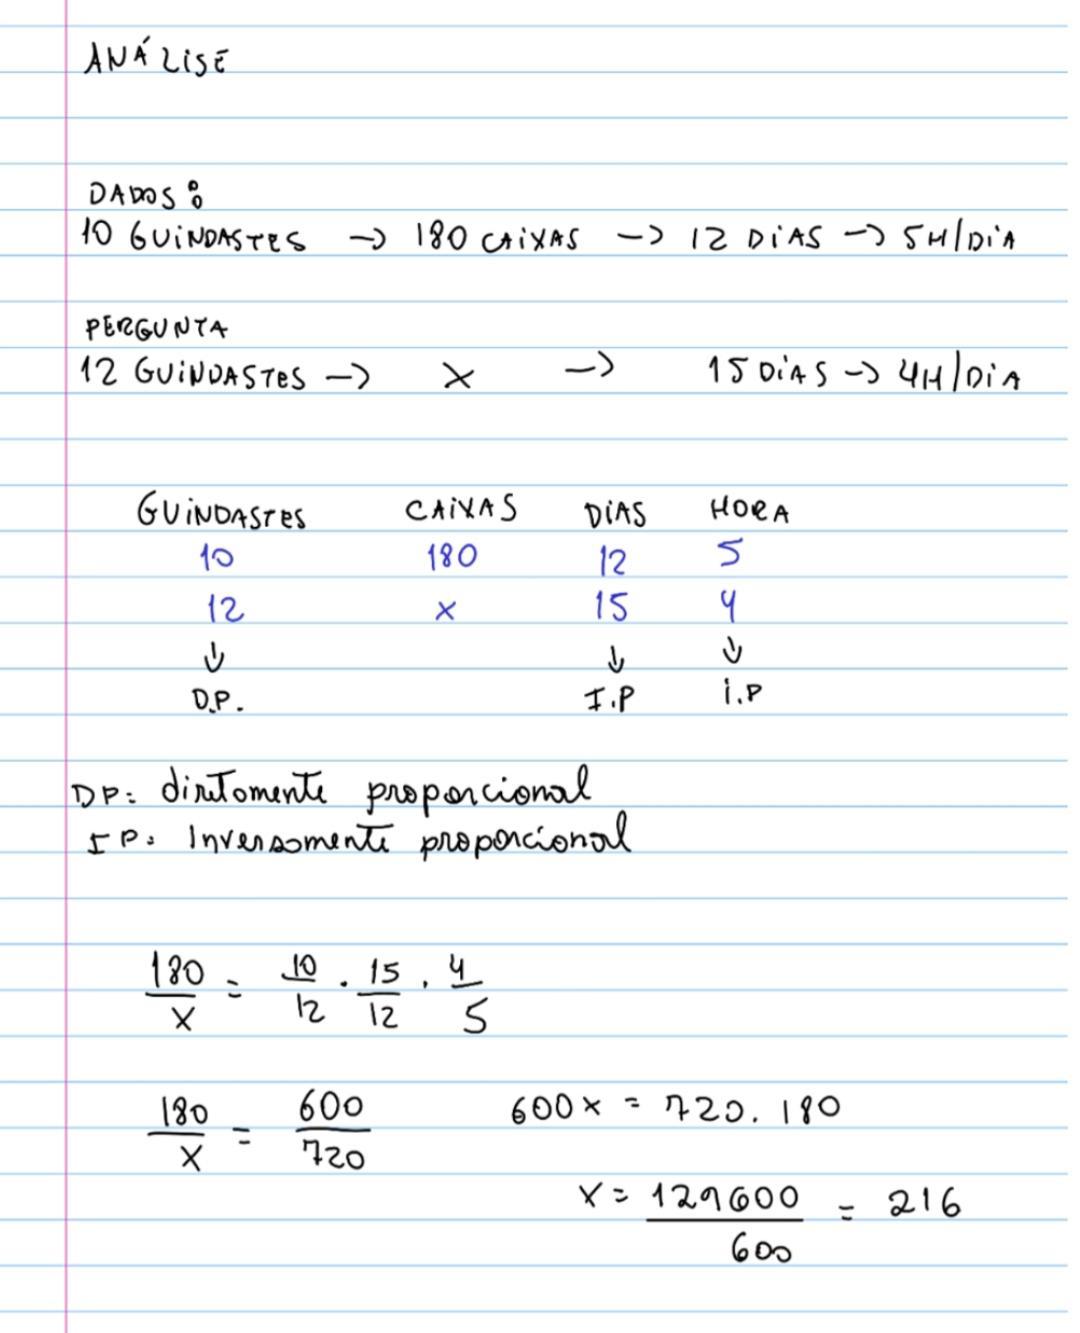 ANÁLISE
DADOS:
10 GUINDASTES -> 180 CAIXAS -> 12 DIAS -> 5H/DIA
PERGUNTA
12 GUINDASTES -> X -> 15 DIAS -> 4H/DIA
GUINDASTES CAIXAS DIAS HORA
10 180 12 5
12 x 15 4
↓ ↓ ↓
D.P. I.P i.P
DP: diretamente proporcional
IP: Inversamente proporcional
180/X = 10/12 . 15/12 . 4/5
180/X = 600/720 600x = 720. 180
X = 129600/600 = 216